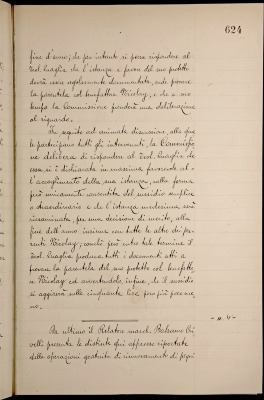 624
fine d'anno; che per intanto si possa rispondere al
Prof. Quaglia che l'istanza a favore del suo protetto
dovrà essere regolarmente documentata, onde provare
la parentela col benefattore Nicolay, e che a suo
tempo la Commissione prenderà una deliberazione
al riguardo.
In seguito ad animata discussione, alla qua-
le partecipano tutti gli intervenuti, la Commissio-
ne delibera di rispondere al Prof. Quaglia che
essa si è dichiarata in massima favorevole al-
l'accoglimento della sua istanza, nella forma
però unicamente consentita del sussidio semplice
e straordinario e che l'istanza medesima sarà
riesaminata, per una decisione di merito, alla
fine dell'anno insieme con tutte le altre dei pa-
renti Nicolay; cosicchè però entro tale termine il
Prof. Quaglia produca tutti i documenti atti a
provare la parentela del suo protetto col benefatto-
re Nicolay ed avvertendolo, infine, che il sussidio
si aggirerà sulle cinquanta lire, poco più poco me-
no.
Da ultimo il Relatore march. Balsamo Cri-
velli presenta le distinte qui appresso riportate
delle operazioni gratuite di rinnovamenti di pegni